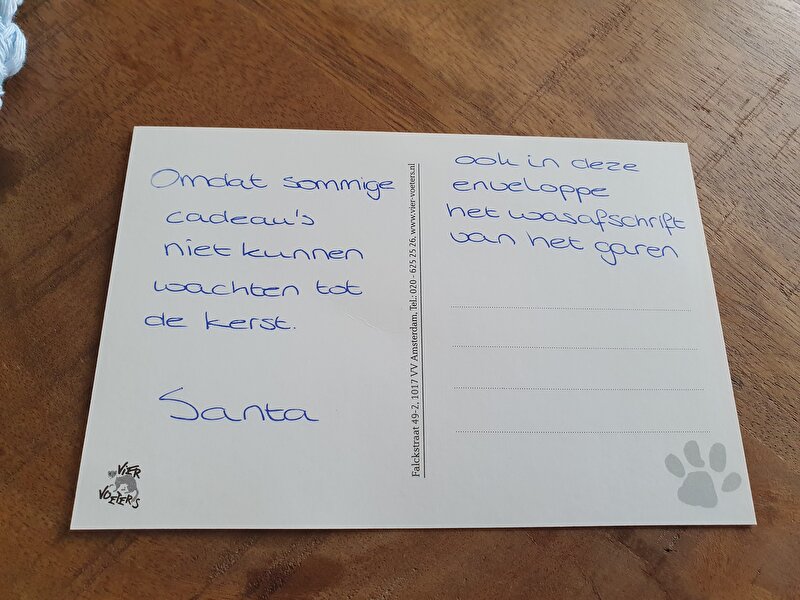 Omdat sommige
cadeau's
niet kunnen
wachten tot
de kerst.
Santa
VIER
VOETERS
Falckstraat 49-2, 1017 VV Amsterdam, Tel.: 020 - 625 25 26, www.vier-voeters.nl
ook in deze
enveloppe
het wasafschrift
van het garen